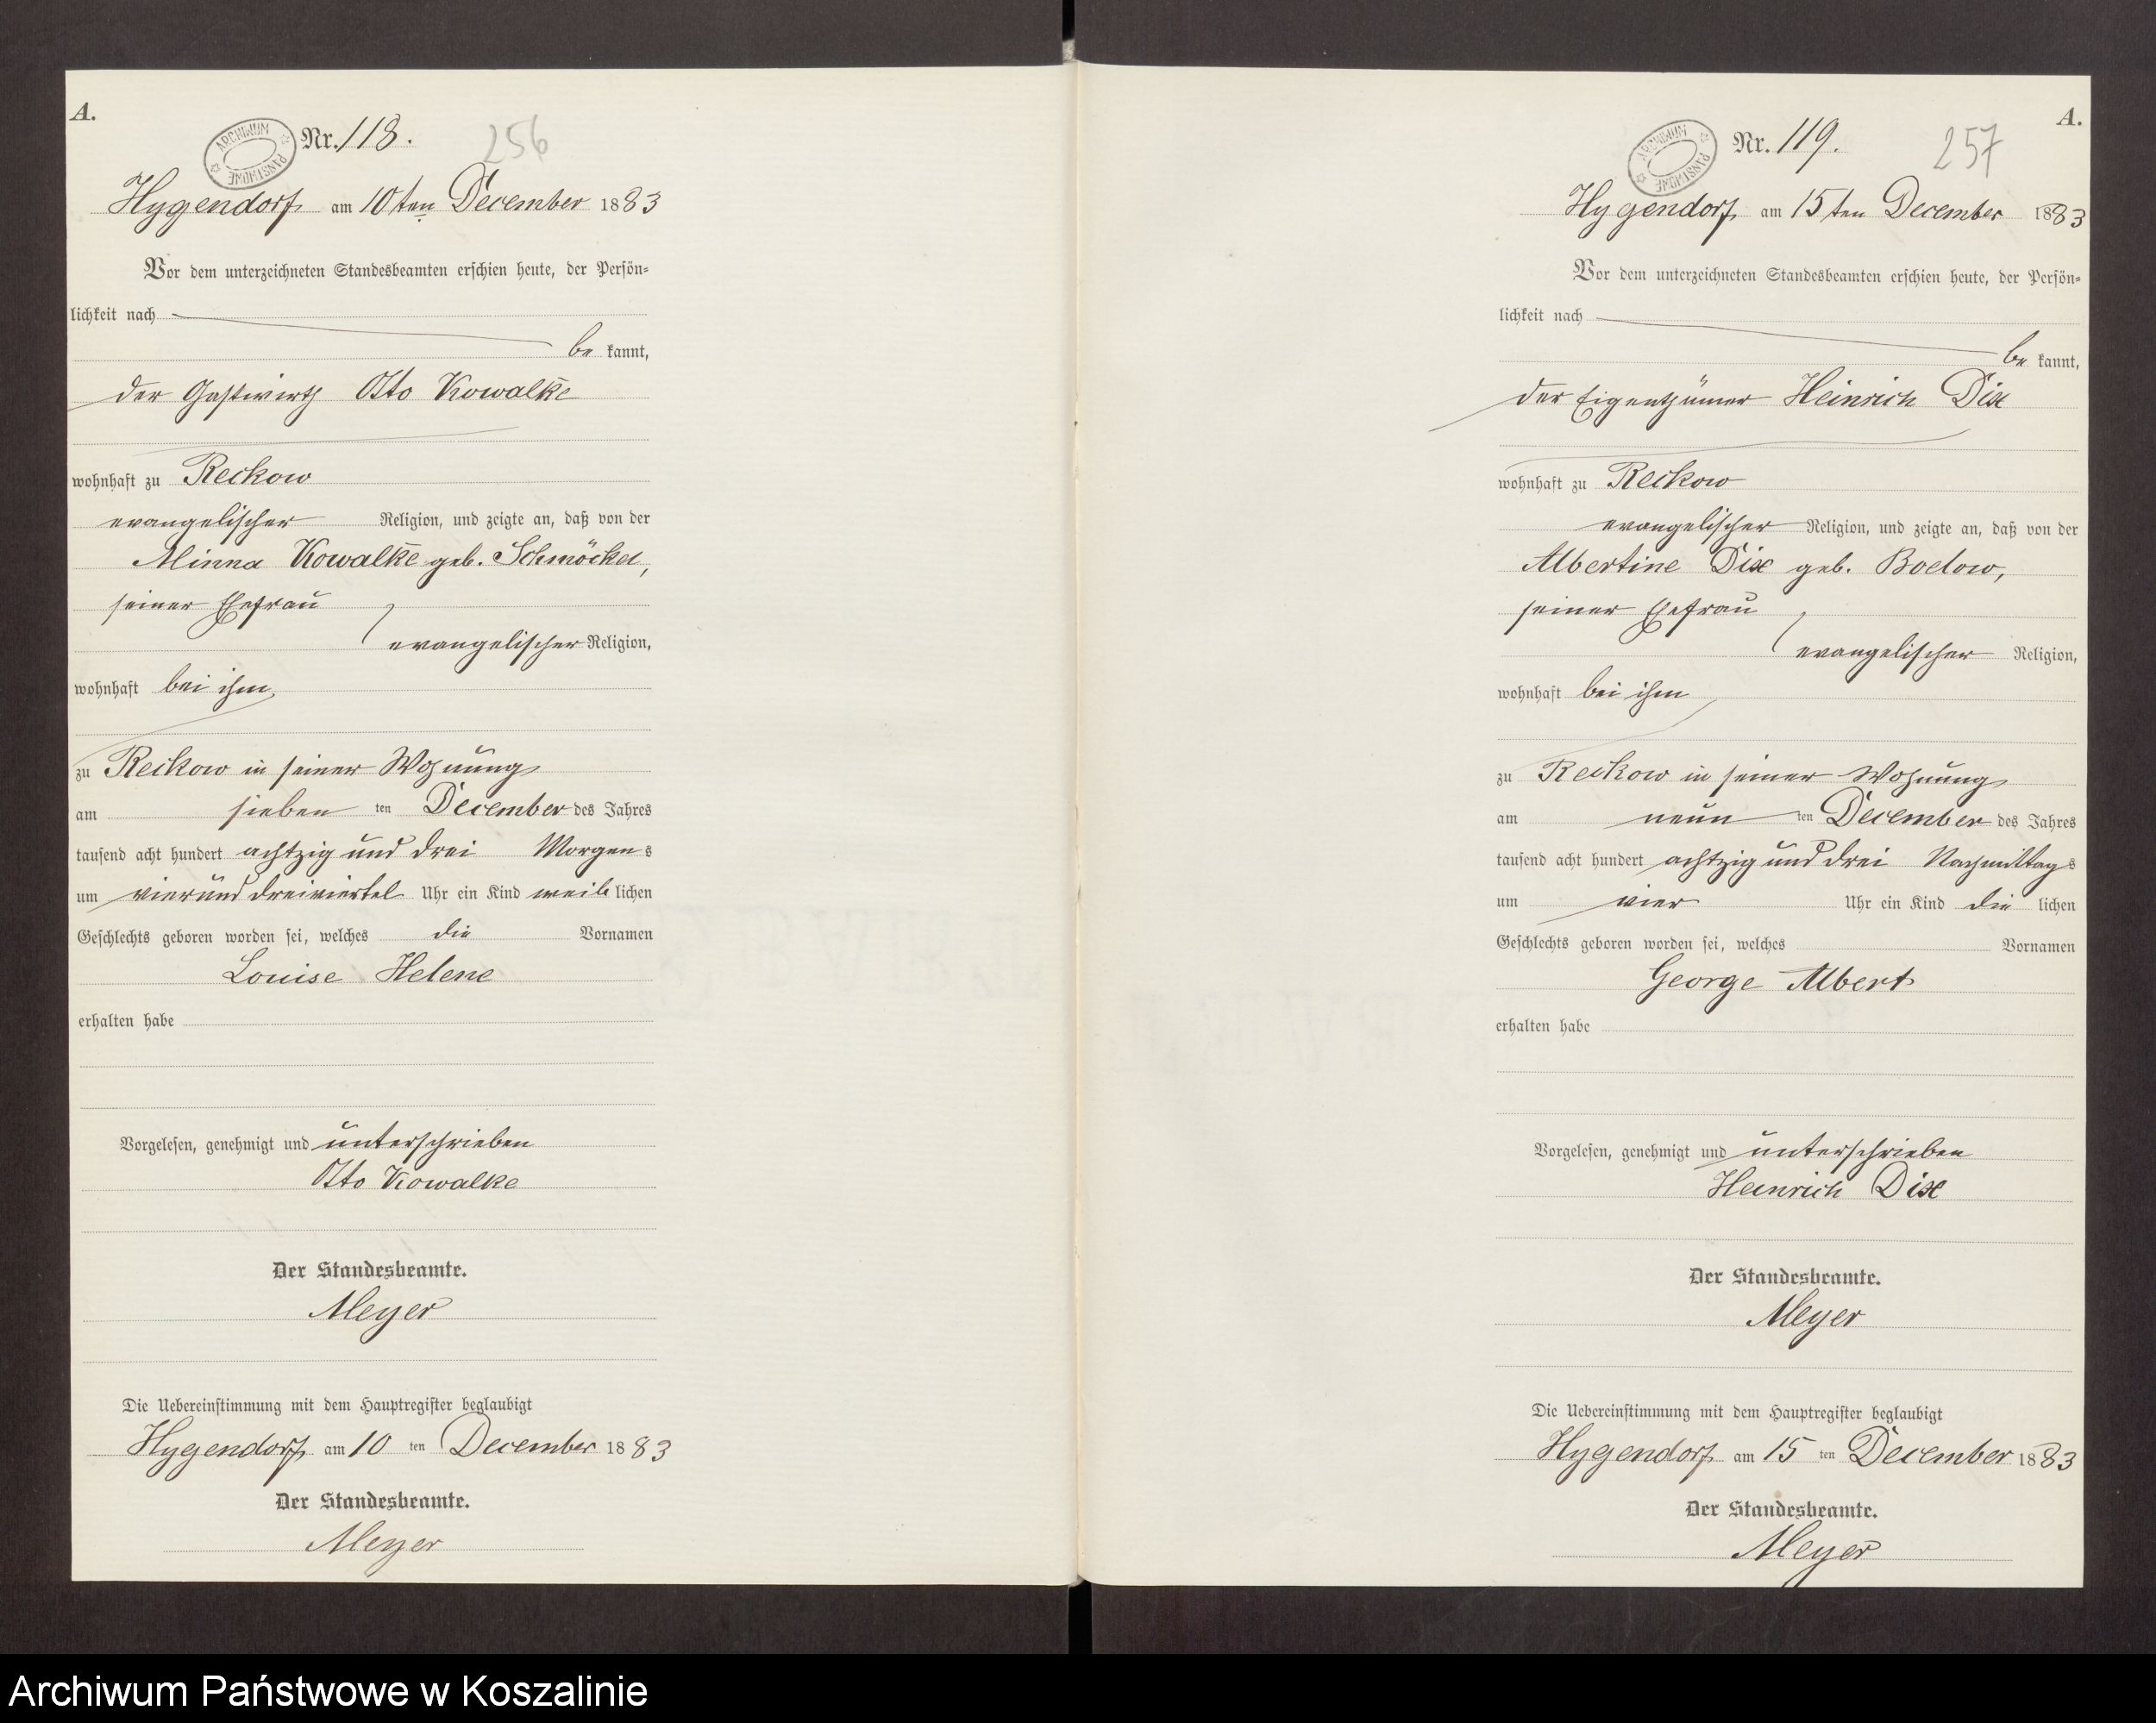 A.
ARCHIWUM PAŃSTWOWE
Nr. 118.
256
Hygendorf am 10ten December 1883
Vor dem unterzeichneten Standesbeamten erschien heute, der Persön-
lichkeit nach
be kannt,
der Gastwirth Otto Kowalke
wohnhaft zu Reckow
evangelischer Religion, und zeigte an, daß von der
Minna Kowalke geb. Schmöckel,
seiner Ehefrau
evangelischer Religion,
wohnhaft bei ihm
zu Reckow in seiner Wohnung
am sieben ten December des Jahres
tausend acht hundert achtzig und drei Morgens
um vier und dreiviertel Uhr ein Kind weiblichen
Geschlechts geboren worden sei, welches die Vornamen
Louise Helene
erhalten habe
Vorgelesen, genehmigt und unterschrieben
Otto Kowalke
Der Standesbeamte.
Meyer
Die Uebereinstimmung mit dem Hauptregister beglaubigt
Hygendorf am 10 ten December 1883
Der Standesbeamte.
Meyer
A.
ARCHIWUM PAŃSTWOWE
Nr. 119.
257
Hygendorf am 15ten December 1883
Vor dem unterzeichneten Standesbeamten erschien heute, der Persön-
lichkeit nach
be kannt,
der Eigenthümer Heinrich Dix
wohnhaft zu Reckow
evangelischer Religion, und zeigte an, daß von der
Albertine Dix geb. Bodow,
seiner Ehefrau
evangelischer Religion,
wohnhaft bei ihm
zu Reckow in seiner Wohnung
am neun ten December des Jahres
tausend acht hundert achtzig und drei Nachmittags
um vier Uhr ein Kind die lichen
Geschlechts geboren worden sei, welches Vornamen
George Albert
erhalten habe
Vorgelesen, genehmigt und unterschrieben
Heinrich Dix
Der Standesbeamte.
Meyer
Die Uebereinstimmung mit dem Hauptregister beglaubigt
Hygendorf am 15 ten December 1883
Der Standesbeamte.
Meyer
Archiwum Państwowe w Koszalinie